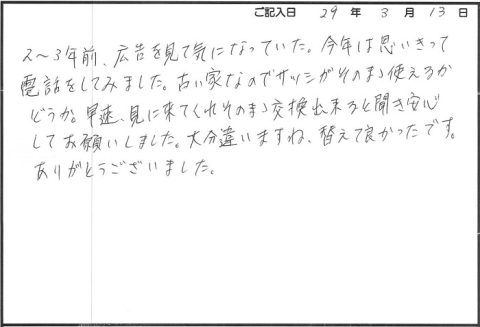 ご記入日 29 年 3 月 13 日
2〜3年前、広告を見て気になっていた。今年は思いきって
電話をしてみました。古い家なのでサッシがそのまま使えるか
どうか。早速、見に来てくれそのまま交換出来ると聞き安心
してお願いしました。大分違いますね、替えて良かったです。
ありがとうございました。